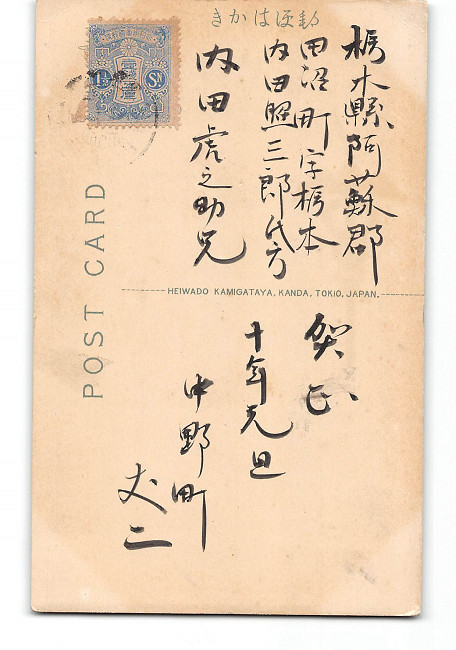 郵便はかき
1½ SN
栃木縣阿蘇郡
田沼町字栃本
内田照三郎氏方
内田虎之助兄
POST CARD
HEIWADO KAMIGATAYA, KANDA, TOKIO, JAPAN.
賀正
十年元旦
中野町
丈二